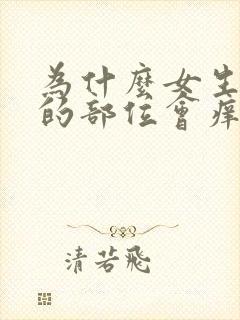 為什麼女生
的部位會痒
清若飛